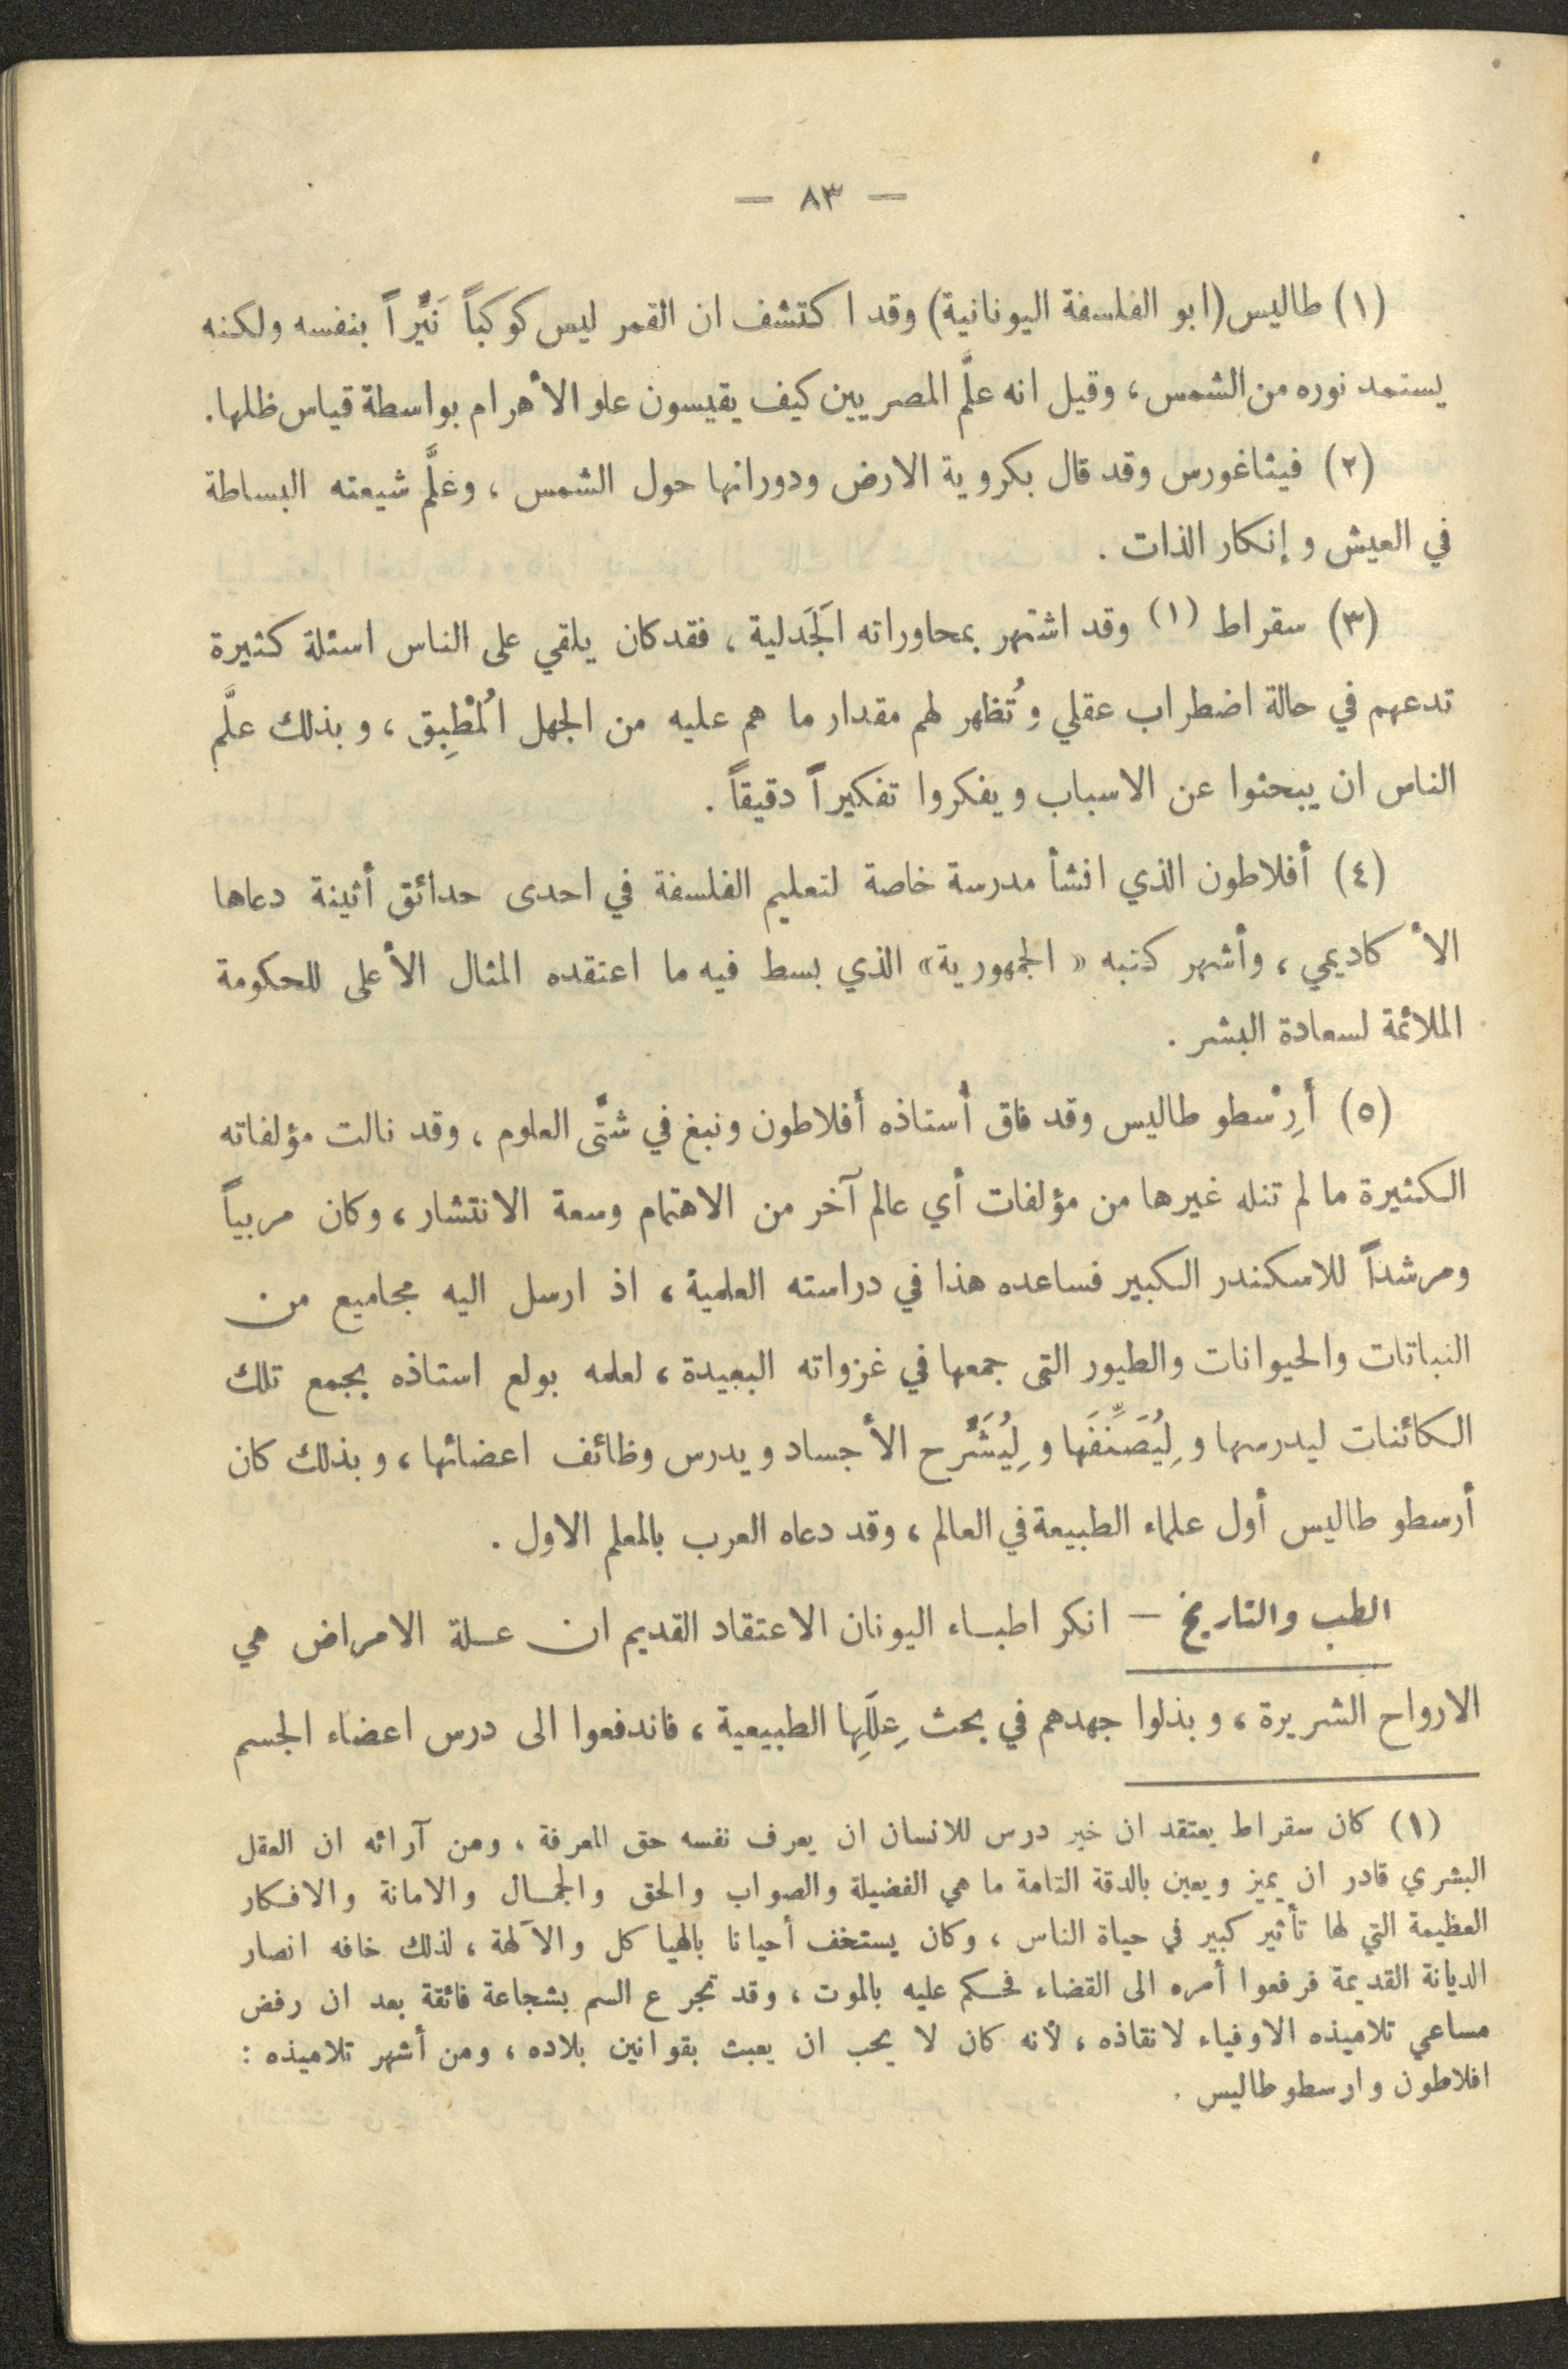 — ٨٣ —
(١) طاليس (ابو الفلسفة اليونانية) وقد اكتشف ان القمر ليس كوكباً نَيِّراً بنفسه ولكنه
يستمد نوره من الشمس ، وقيل انه علَّم المصريين كيف يقيسون علو الأهرام بواسطة قياس ظلها.
(٢) فيثاغورس وقد قال بكروية الارض ودورانها حول الشمس ، وعلَّم شيعته البساطة
في العيش وإنكار الذات .
(٣) سقراط (١) وقد اشتهر بمحاوراته الَجَدلية ، فقد كان يلقي على الناس اسئلة كثيرة
تدعهم في حالة اضطراب عقلي وُتظهر لهم مقدار ما هم عليه من الجهل اُلمْطِبِق ، وبذلك علَّم
الناس ان يبحثوا عن الاسباب ويفكروا تفكيراً دقيقاً .
(٤) أفلاطون الذي انشأ مدرسة خاصة لتعليم الفلسفة في احدى حدائق أثينة دعاها
الأكاديمي ، وأشهر كتبه « الجمهورية » الذي بسط فيه ما اعتقده المثال الأعلى للحكومة
الملائمة لسعادة البشر .
(٥) أَرِسْطو طاليس وقد فاق أستاذه أفلاطون ونبغ في شتَّى العلوم ، وقد نالت مؤلفاته
الكثيرة ما لم تنله غيرها من مؤلفات أي عالم آخر من الاهتمام وسعة الانتشار ، وكان مربياً
ومرشداً للاسكندر الكبير فساعده هذا في دراسته العلمية ، اذ ارسل اليه مجاميع من
النباتات والحيوانات والطيور التى جمعها في غزواته البعيدة ، لعلمه بولع استاذه بجمع تلك
الكائنات ليدرسها وِليُصَنِّفَها وِليُشَرِّح الأجساد ويدرس وظائف اعضائها ، وبذلك كان
أرسطو طاليس أول علماء الطبيعة في العالم ، وقد دعاه العرب بالمعلم الاول .
الطب والتاريخ — انكر اطبـاء اليونان الاعتقاد القديم ان عـلة الامراض هي
الارواح الشريرة ، وبذلوا جهدهم في بحث ِعلَلِها الطبيعية ، فاندفعوا الى درس اعضاء الجسم
(١) كان سقراط يعتقد ان خير درس للانسان ان يعرف نفسه حق المعرفة ، ومن آرائه ان العقل
البشري قادر ان يميز ويعين بالدقة التامة ما هي الفضيلة والصواب والحق والجمـال والامانة والافـكار
العظيمة التي لها تأثير كبير في حياة الناس ، وكان يستخف أحيانا بالهياكل والآلهة ، لذلك خافه انصار
الديانة القديمة فرفعوا أمره الى القضاء فحـكم عليه بالموت ، وقد تجرع السم بشجاعة فائقة بعد ان رفض
مساعي تلاميذه الاوفياء لانقاذه ، لأنه كان لا يحب ان يعبث بقوانين بلاده ، ومن أشهر تلاميذه :
افلاطون وارسطوطاليس .